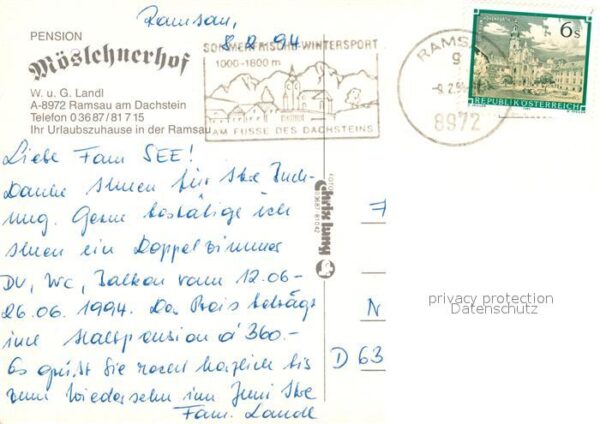 Ramsau,
8.2.94
PENSION
Möslehnerhof
W. u. G. Landl
A-8972 Ramsau am Dachstein
Telefon 0 36 87 / 81 7 15
Ihr Urlaubszuhause in der Ramsau
SOMMERFRISCHE-WINTERSPORT
1000-1800 m
AM FUSSE DES DACHSTEINS
RAMSAU
9
-9.2.94
8972
6s
REPUBLIK ÖSTERREICH
Liebe Fam SEE!
Danke Ihnen für Ihre Buch-
ung. Gerne bestätige ich
Ihnen ein Doppelzimmer
DU, WC, Balkon vom 12.06-
26.06.1994. Der Preis beträgt
inkl Halbpension á 360.-
Es grüßt Sie recht herzlich bis
zum Wiedersehn im Juni Ihre
Fam. Landl
FOTO
03687 81042
N
D 63
privacy protection
Datenschutz